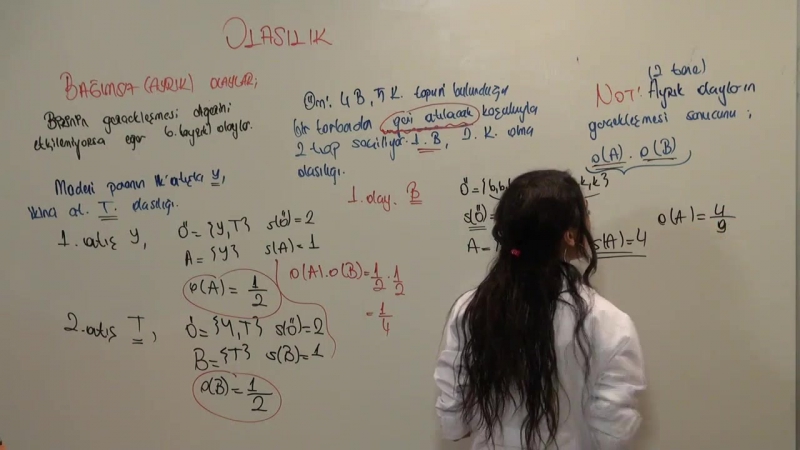 OLASILIK
BAĞIMSIZ (AYRIK) OLAYLAR;
Birisinin gerçekleşmesi diğerini
etkilemiyorsa eğer b. olaylar.
Madeni paranın ilk atışta Y,
ikinci at. T. olasılığı.
1. atış Y,
Ö = {Y,T} s(Ö) = 2
A = {Y} s(A) = 1
o(A) = 1/2
2. atış T,
Ö = {Y,T} s(Ö) = 2
B = {T} s(B) = 1
o(B) = 1/2
o(A).o(B) = 1/2 . 1/2
= 1/4
Örn: 4 B, 5 K. topun bulunduğu
bir torbadan geri atılacak koşuluyla
2 top seçiliyor. 1. B, 2. K. olma
olasılığı.
1. olay. B
Ö = {b,b, k,k}
s(Ö) =
A =
s(A) = 4
o(A) = 4/9
(2 tane)
NOT: Ayrık olayların
gerçekleşmesi sonucunu;
o(A) . o(B)